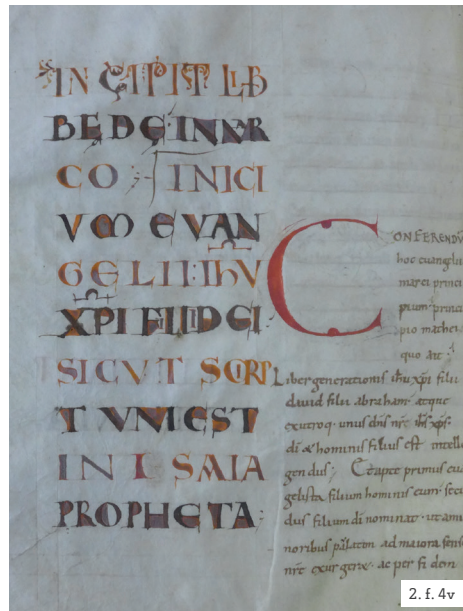 INCIPIT LIB
BEDE INMAR
CO INICI
VM EVAN
GELII IHV
XPI FILII DEI
SICVT SCRIP
TVM EST
IN ISAIA
PROPHETA
CONFERENDV
hoc euangelii
marci princi
pium princi
pio mathei
quo ait
Liber generationis ihu xpi filii
dauid filii abraham. atque
ex utroq. unus dns nr ihs xps.
di & hominis filius est intelle
gendus. Et apte primus euan
gelista filium hominis eum. secun
dus filium di nominat. ut a mi
noribus paulatim ad maiora sens
nr exurgeret. ac per fidem
2. f. 4v